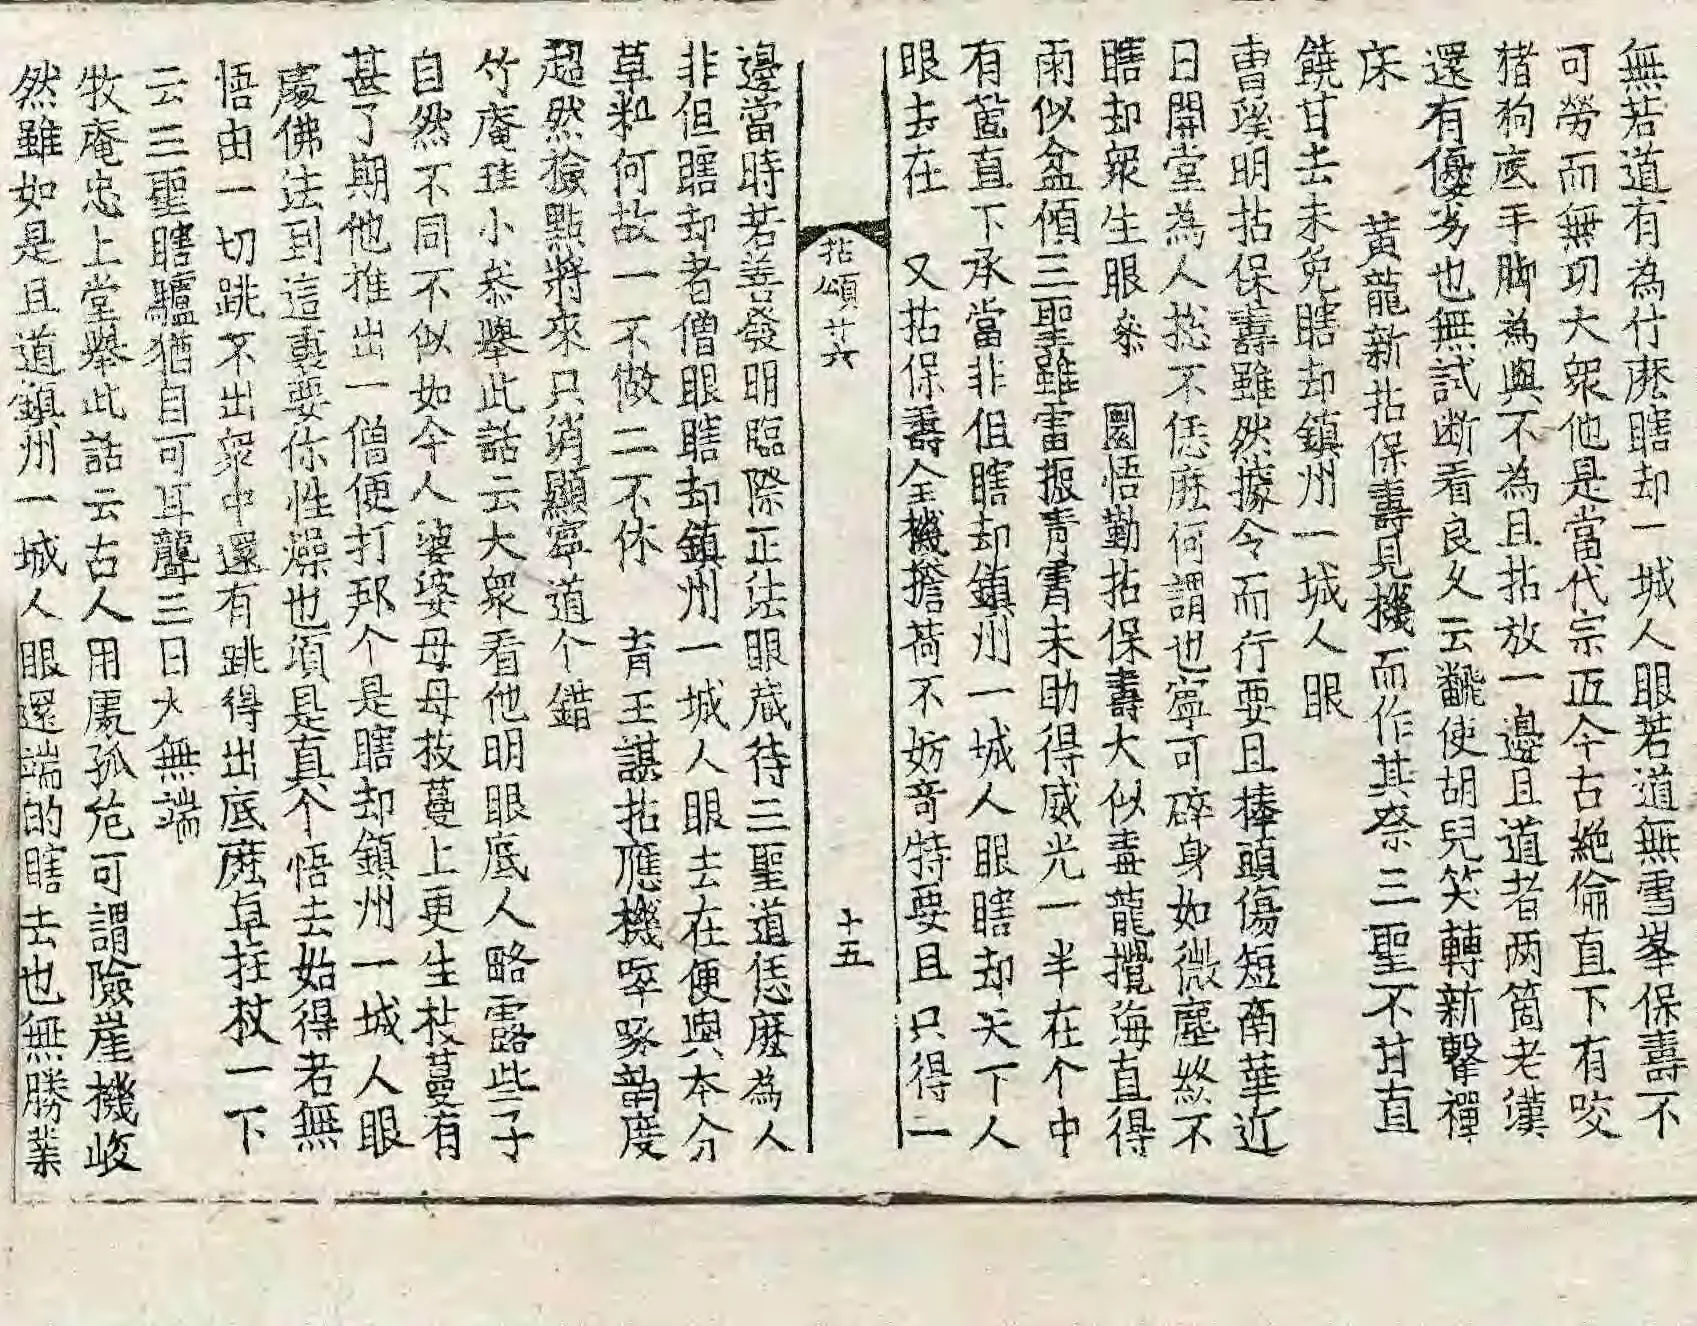 無若道有為什麼瞎却一城人眼若道無雪峯保壽不
可勞而無功大衆他是當代宗匠今古絶倫直下有咬
猪狗底手脚為與不為且拈放一邊且道者两箇老漢
還有優劣也無試断看良久云飜使胡兒笑轉新擊禪
床　黃龍新拈保壽見機而作其奈三聖不甘直
饒甘去未免瞎却鎮州一城人眼
曺溪明拈保壽雖然據令而行要且棒頭傷短南華近
日開堂為人捴不恁麽何謂也寧可碎身如微塵終不
瞎却衆生眼叅　圜悟勤拈保壽大似毒龍攪海直得
雨似盆傾三聖雖雷振青霄未助得威光一半在个中
有箇直下承當非但瞎却鎮州一城人眼瞎却天下人
眼去在　又拈保壽全機擔荷不妨竒特要且只得一
拈頌廿六　十五
邊當時若善發明臨際正法眼蔵待三聖道恁麽為人
非但瞎却者僧眼瞎却鎮州一城人眼去在便與本分
草料何故一不做二不休　育王諶拈應機啐啄韵度
超然撿點將來只消顯寧道个錯
竹庵珪小叅擧此話云大衆看他明眼底人略露些子
自然不同不似如今人婆婆母母枝蔓上更生枝蔓有
甚了期他推出一僧便打那个是瞎却鎮州一城人眼
處佛法到這裏要你性澡也須是真个悟去始得若無
悟由一切跳不出衆中還有跳得出底麽卓拄杖一下
云三聖瞎驢猶自可耳聾三日大無端
牧庵忠上堂擧此話云古人用處孤危可謂險崖機峻
然雖如是且道鎮州一城人眼還端的瞎去也無勝業